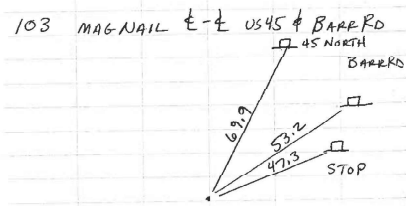 103 MAG NAIL ℄-℄ US45 & BARR RD
45 NORTH
BARR RD
69.9
53.2
47.3
STOP